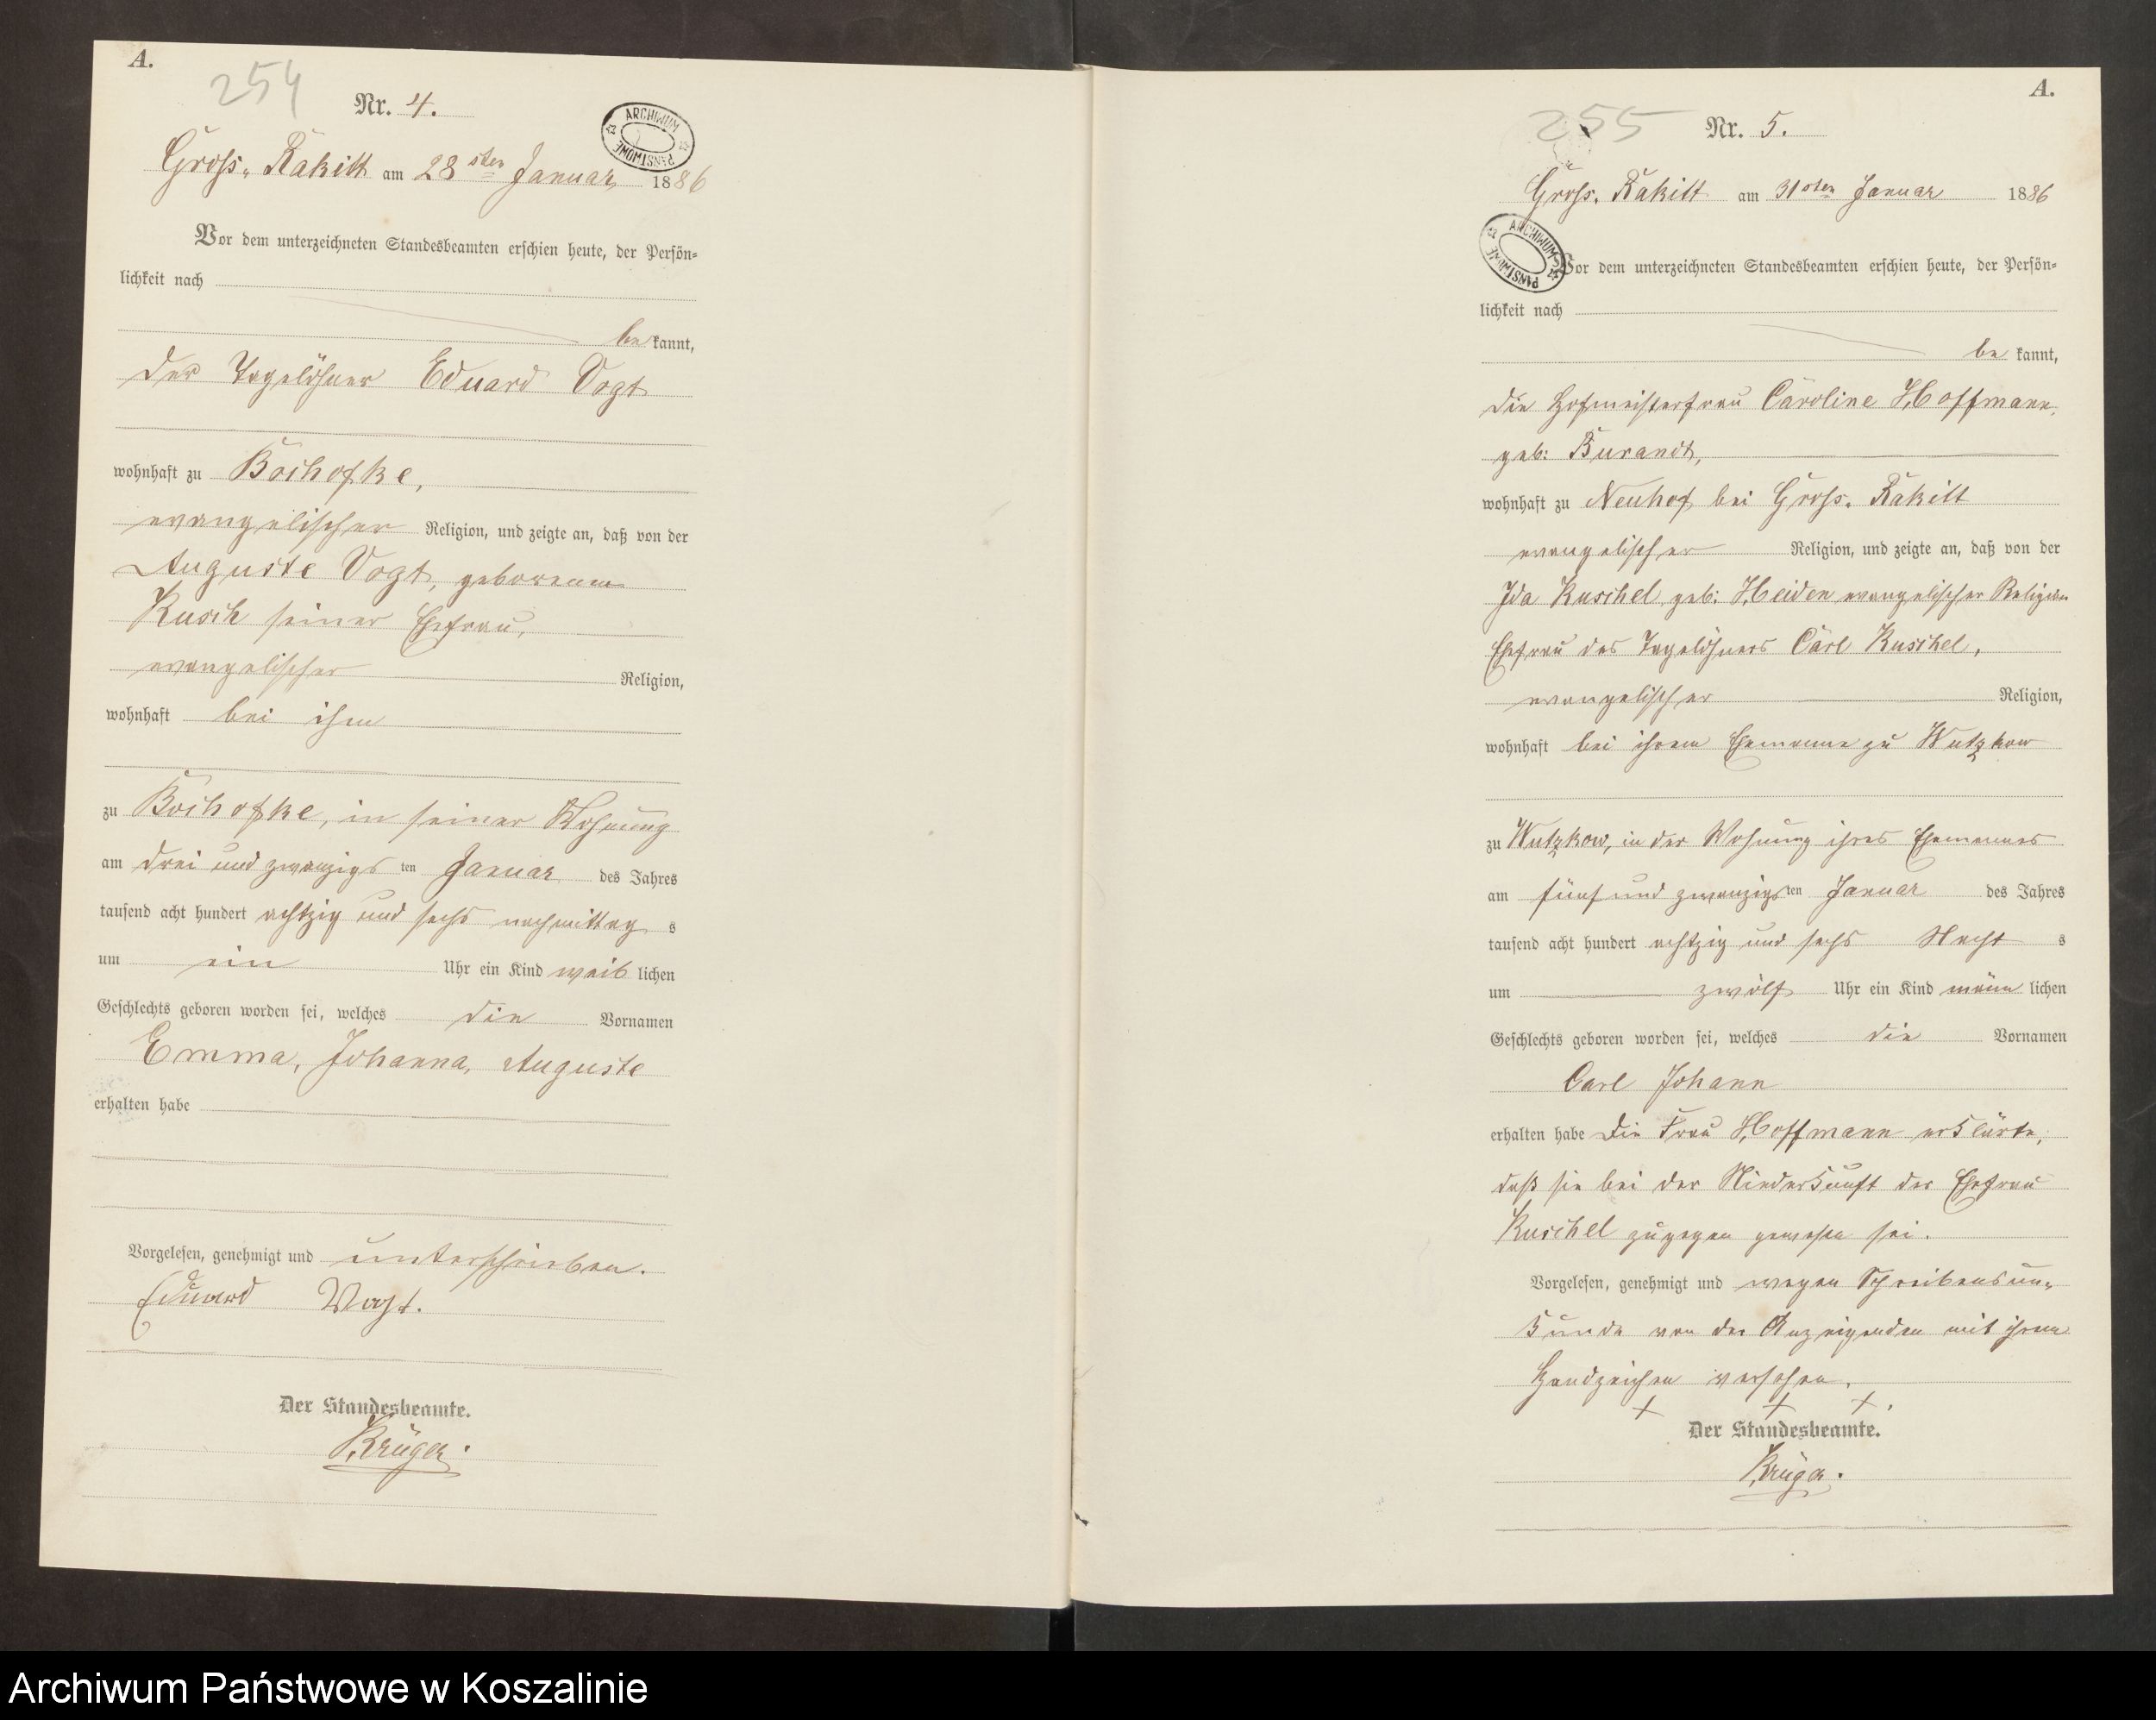 A.
254
Nr. 4.
ARCHIWUM PAŃSTWOWE
Gross. Rakitt am 28sten Januar 1886
Vor dem unterzeichneten Standesbeamten erschien heute, der Persön-
lichkeit nach
be kannt,
der Tagelöhner Eduard Vogt
wohnhaft zu Bochofke,
evangelischer Religion, und zeigte an, daß von der
Auguste Vogt, geborenen
Kusch seiner Ehefrau,
evangelischer Religion,
wohnhaft bei ihm
zu Bochofke, in seiner Wohnung
am drei und zwanzigs ten Januar des Jahres
tausend acht hundert achtzig und sechs nachmittag s
um ein Uhr ein Kind weib lichen
Geschlechts geboren worden sei, welches die Vornamen
Emma, Johanna, Auguste
erhalten habe
Vorgelesen, genehmigt und unterschrieben.
Eduard Vogt.
Der Standesbeamte.
Krüger.
A.
255
Nr. 5.
Gross. Rakitt am 31sten Januar 1886
ARCHIWUM PAŃSTWOWE
Vor dem unterzeichneten Standesbeamten erschien heute, der Persön-
lichkeit nach
be kannt,
die Hofmeisterfrau Caroline Hoffmann,
geb: Burandt,
wohnhaft zu Neuhof bei Gross. Rakitt
evangelischer Religion, und zeigte an, daß von der
Ida Kuschel, geb: Heiden evangelischer Religion
Ehefrau des Tagelöhners Carl Kuschel,
evangelischer Religion,
wohnhaft bei ihrem Ehemanne zu Wutzkow
zu Wutzkow, in der Wohnung ihres Ehemannes
am fünf und zwanzigs ten Januar des Jahres
tausend acht hundert achtzig und sechs Nacht s
um zwölf Uhr ein Kind männ lichen
Geschlechts geboren worden sei, welches die Vornamen
Carl Johann
erhalten habe Die Frau Hoffmann erklärte,
daß sie bei der Niederkunft der Ehefrau
Kuschel zugegen gewesen sei.
Vorgelesen, genehmigt und wegen Schreibensun-
kunde von der Anzeigenden mit ihrem
Handzeichen versehen.
+ + +.
Der Standesbeamte.
Krüger.
Archiwum Państwowe w Koszalinie